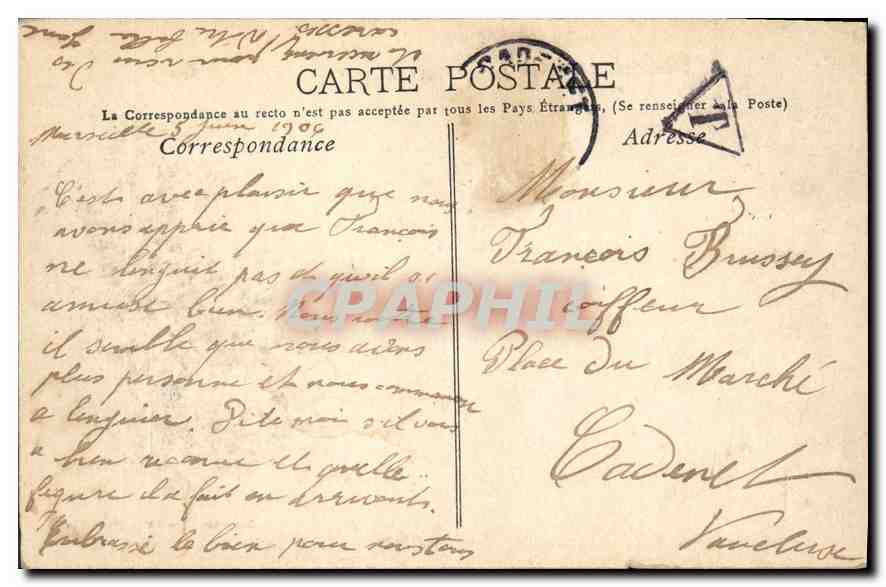 CARTE POSTALE
La Correspondance au recto n'est pas acceptée par tous les Pays Étrangers, (Se renseigner à la Poste)
Marseille 5 Juin 1906
Correspondance
C'est avec plaisir que nous
avons apprie que François
ne lenguit pas et qu'il s'
amuse bien. Nous autre
il semble que nous avons
plus personne et nous commençon
a lenguier. Dite moi s'il vous
a bien reconue et quelle
figure il a fait en arrivants.
Enbrassé le bien pour nous tous
et recevez pour vous des
caresses Votre belle Jane
CADENET
T
Adresse
Monsieur
François Brussey
coiffeur
Place du Marché
Cadenet
Vaucluse
CPAPHIL